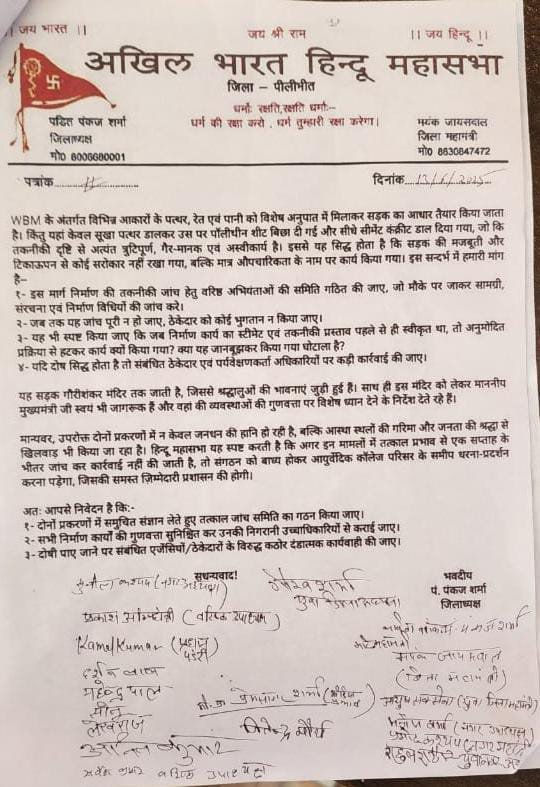 ।। जय भारत ।।
जय श्री राम
।। जय हिन्दू ।।
अखिल भारत हिन्दू महासभा
जिला – पीलीभीत
धर्मोः रक्षति,रक्षति धर्माः–
धर्म की रक्षा करो , धर्म तुम्हारी रक्षा करेगा।
पंडित पंकज शर्मा
जिलाध्यक्ष
मो0 8006680001
मयंक जायसवाल
जिला महामंत्री
मो0 8630847472
पत्रांक
दिनांक 13/6/2025
WBM के अंतर्गत विभिन्न आकारों के पत्थर, रेत एवं पानी को विशेष अनुपात में मिलाकर सड़क का आधार तैयार किया जाता
है। किंतु यहां केवल सूखा पत्थर डालकर उस पर पॉलीथीन शीट बिछा दी गई और सीधे सीमेंट कंक्रीट डाल दिया गया, जो कि
तकनीकी दृष्टि से अत्यंत त्रुटिपूर्ण, गैर-मानक एवं अस्वीकार्य है। इससे यह सिद्ध होता है कि सड़क की मजबूती और
टिकाऊपन से कोई सरोकार नहीं रखा गया, बल्कि मात्र औपचारिकता के नाम पर कार्य किया गया। इस सन्दर्भ में हमारी मांग
है–
१- इस मार्ग निर्माण की तकनीकी जांच हेतु वरिष्ठ अभियंताओं की समिति गठित की जाए, जो मौके पर जाकर सामग्री,
संरचना एवं निर्माण विधियों की जांच करे।
२- जब तक यह जांच पूरी न हो जाए, ठेकेदार को कोई भुगतान न किया जाए।
३- यह भी स्पष्ट किया जाए कि जब निर्माण कार्य का स्टीमेट एवं तकनीकी प्रस्ताव पहले से ही स्वीकृत था, तो अनुमोदित
प्रक्रिया से हटकर कार्य क्यों किया गया? क्या यह जानबूझकर किया गया घोटाला है?
४- यदि दोष सिद्ध होता है तो संबंधित ठेकेदार एवं पर्यवेक्षणकर्ता अधिकारियों पर कड़ी कार्रवाई की जाए।
यह सड़क गौरीशंकर मंदिर तक जाती है, जिससे श्रद्धालुओं की भावनाएं जुड़ी हुई हैं। साथ ही इस मंदिर को लेकर माननीय
मुख्यमंत्री जी स्वयं भी जागरूक हैं और वहां की व्यवस्थाओं की गुणवत्ता पर विशेष ध्यान देने के निर्देश देते रहे हैं।
मान्यवर, उपरोक्त दोनों प्रकरणों में न केवल जनधन की हानि हो रही है, बल्कि आस्था स्थलों की गरिमा और जनता की श्रद्धा से
खिलवाड़ भी किया जा रहा है। हिन्दू महासभा यह स्पष्ट करती है कि अगर इन मामलों में तत्काल प्रभाव से एक सप्ताह के
भीतर जांच कर कार्रवाई नहीं की जाती है, तो संगठन को बाध्य होकर आयुर्वेदिक कॉलेज परिसर के समीप धरना-प्रदर्शन
करना पड़ेगा, जिसकी समस्त ज़िम्मेदारी प्रशासन की होगी।
अतः आपसे निवेदन है कि:-
१- दोनों प्रकरणों में समुचित संज्ञान लेते हुए तत्काल जांच समिति का गठन किया जाए।
२- सभी निर्माण कार्यों की गुणवत्ता सुनिश्चित कर उनकी निगरानी उच्चाधिकारियों से कराई जाए।
३- दोषी पाए जाने पर संबंधित एजेंसियों/ठेकेदारों के विरुद्ध कठोर दंडात्मक कार्यवाही की जाए।
सधन्यवाद!
भवदीय
पं. पंकज शर्मा
जिलाध्यक्ष
Kamal Kumar
दर्शन लाल
महेन्द्र पाल
लेखराज
जितेन्द्र मौर्य